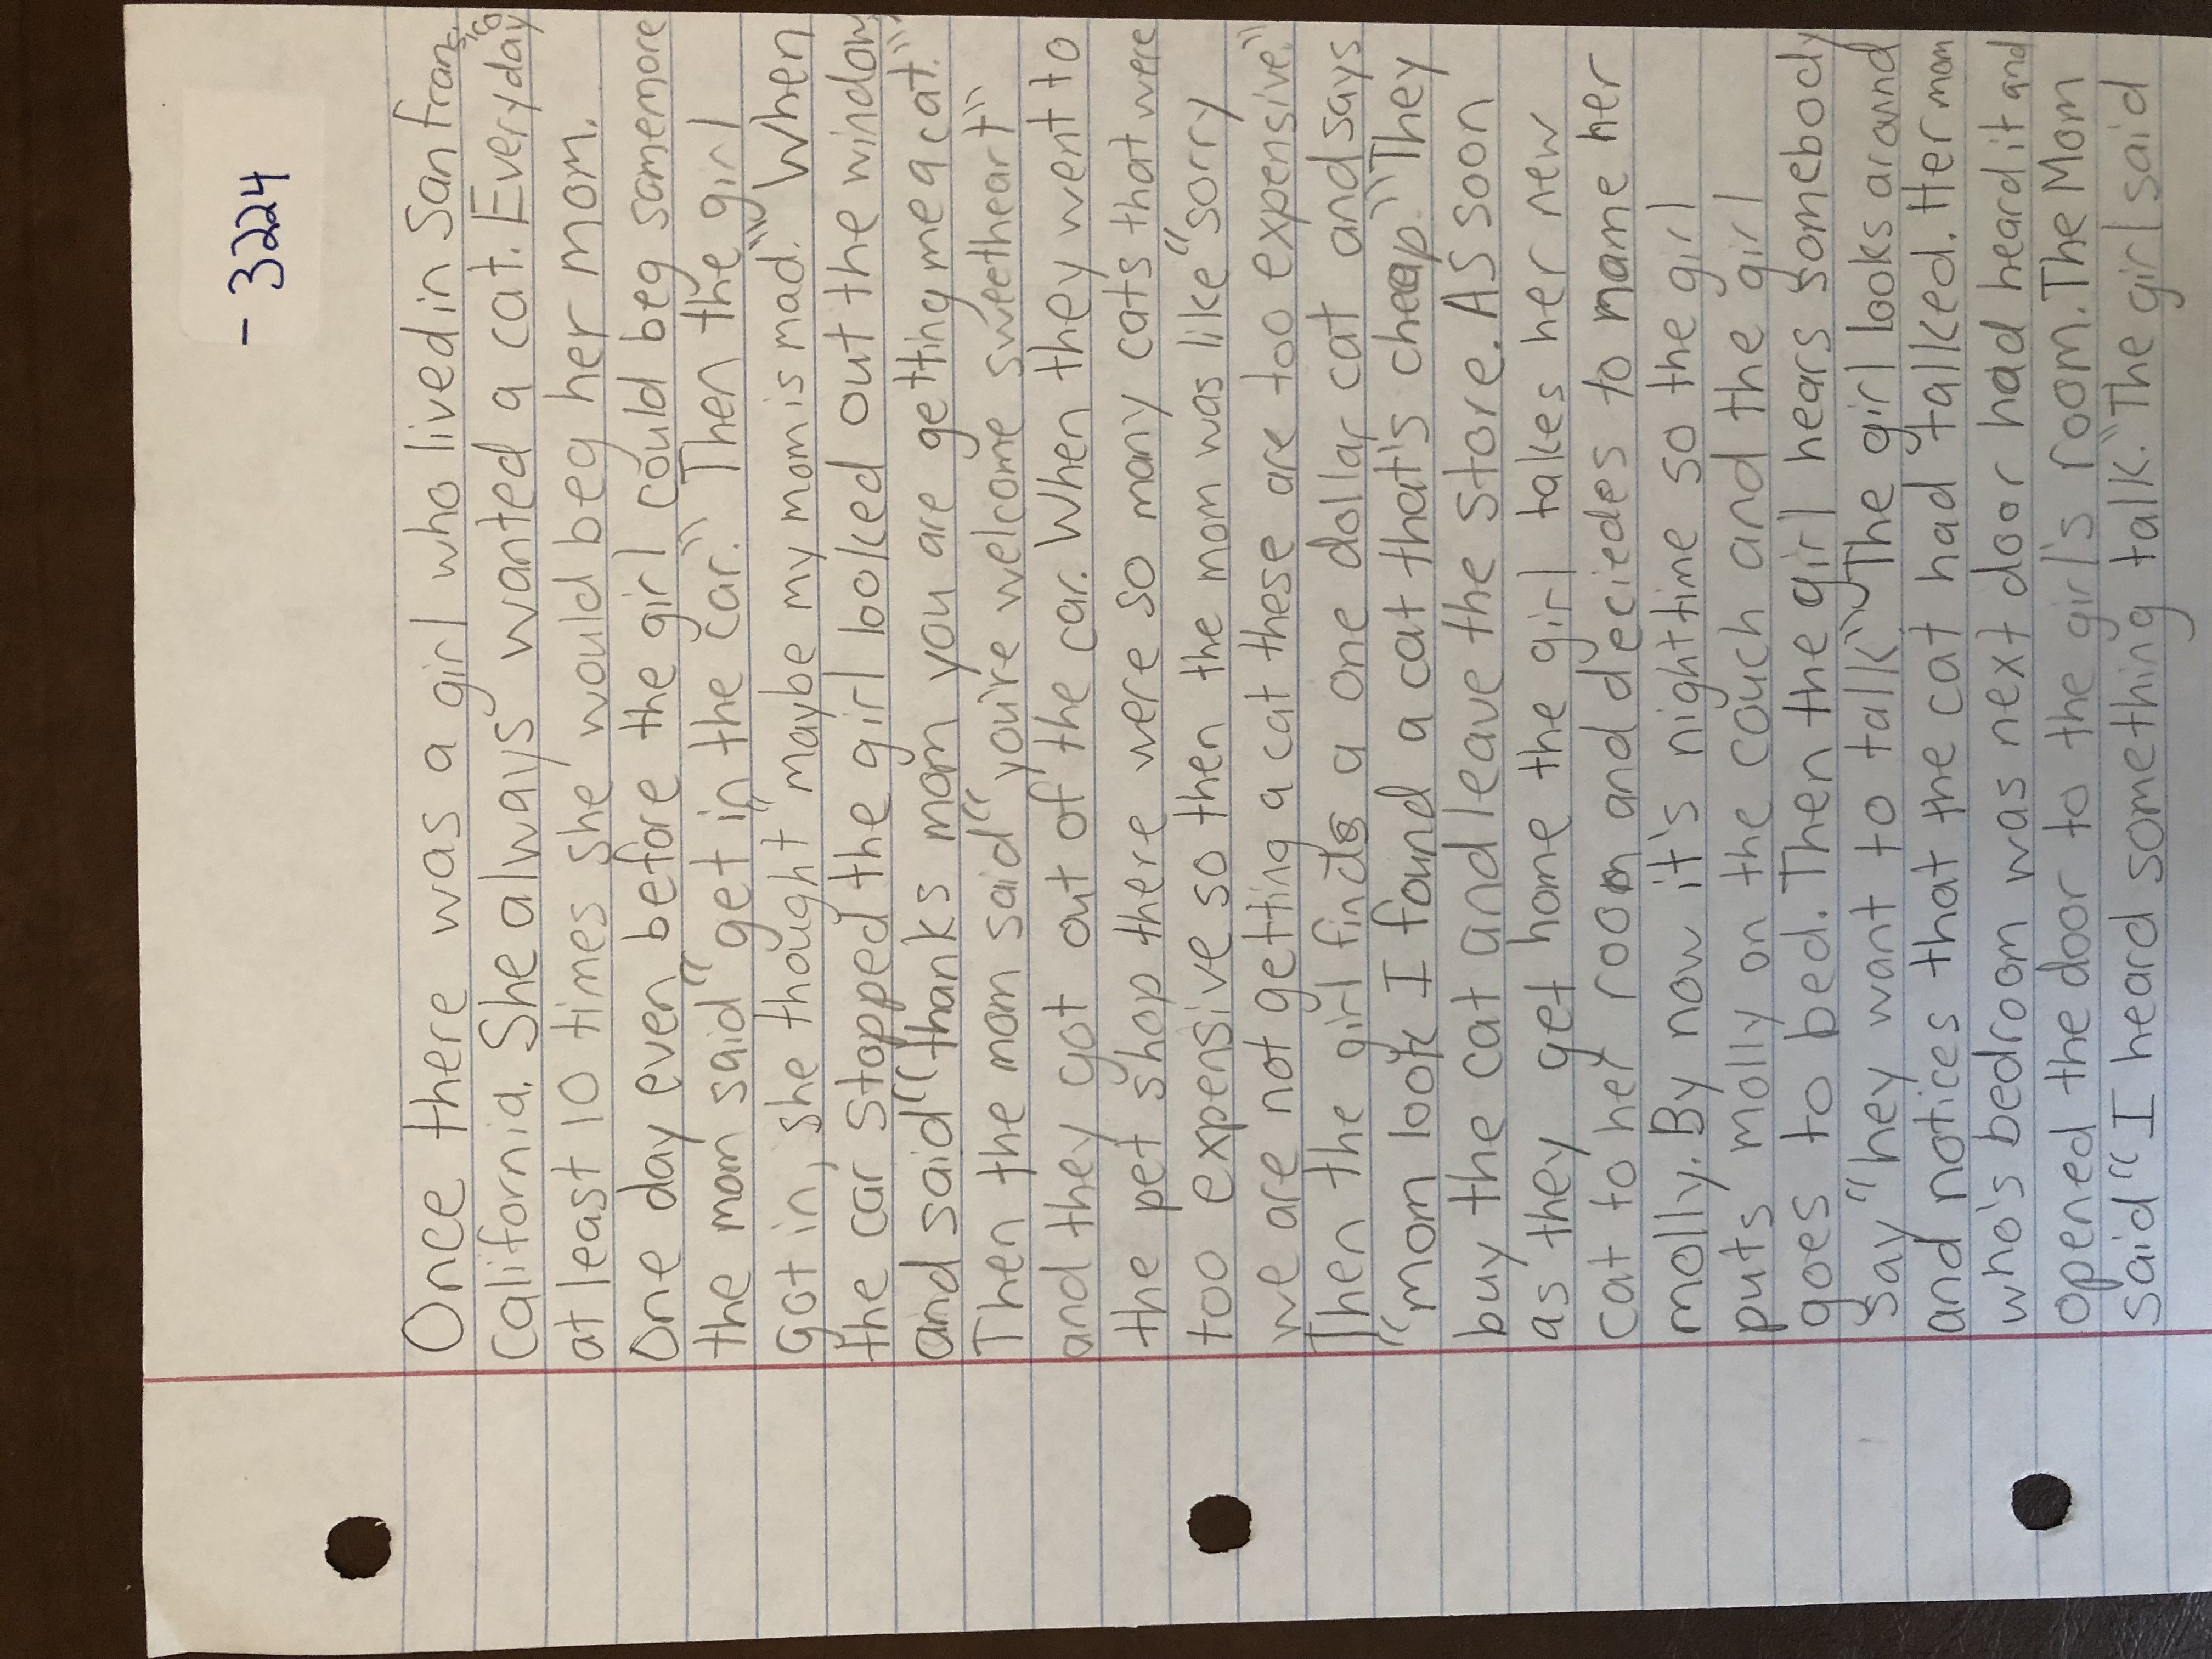 - 3224
Once there was a girl who lived in San Fransico
California. She always wanted a cat. Everyday
at least 10 times she would beg her mom.
One day even before the girl could beg somemore
the mom said "get in the car." Then the girl
got in, she thought "maybe my mom is mad." When
the car stopped the girl looked out the window
and said "thanks mom you are getting me a cat."
Then the mom said "you're welcome sweetheart"
and they got out of the car. When they went to
the pet shop there were so many cats that were
too expensive so then the mom was like "sorry
we are not getting a cat these are too expensive."
Then the girl finds a one dollar cat and says
"mom look I found a cat that's cheap." They
buy the cat and leave the store. As soon
as they get home the girl takes her new
cat to her room and deciedes to name her
molly. By now it's nighttime so the girl
puts molly on the couch and the girl
goes to bed. Then the girl hears somebody
say "hey want to talk." The girl looks around
and notices that the cat had talked. Her mom
who's bedroom was next door had heard it and
opened the door to the girl's room. The Mom
said "I heard something talk." The girl said